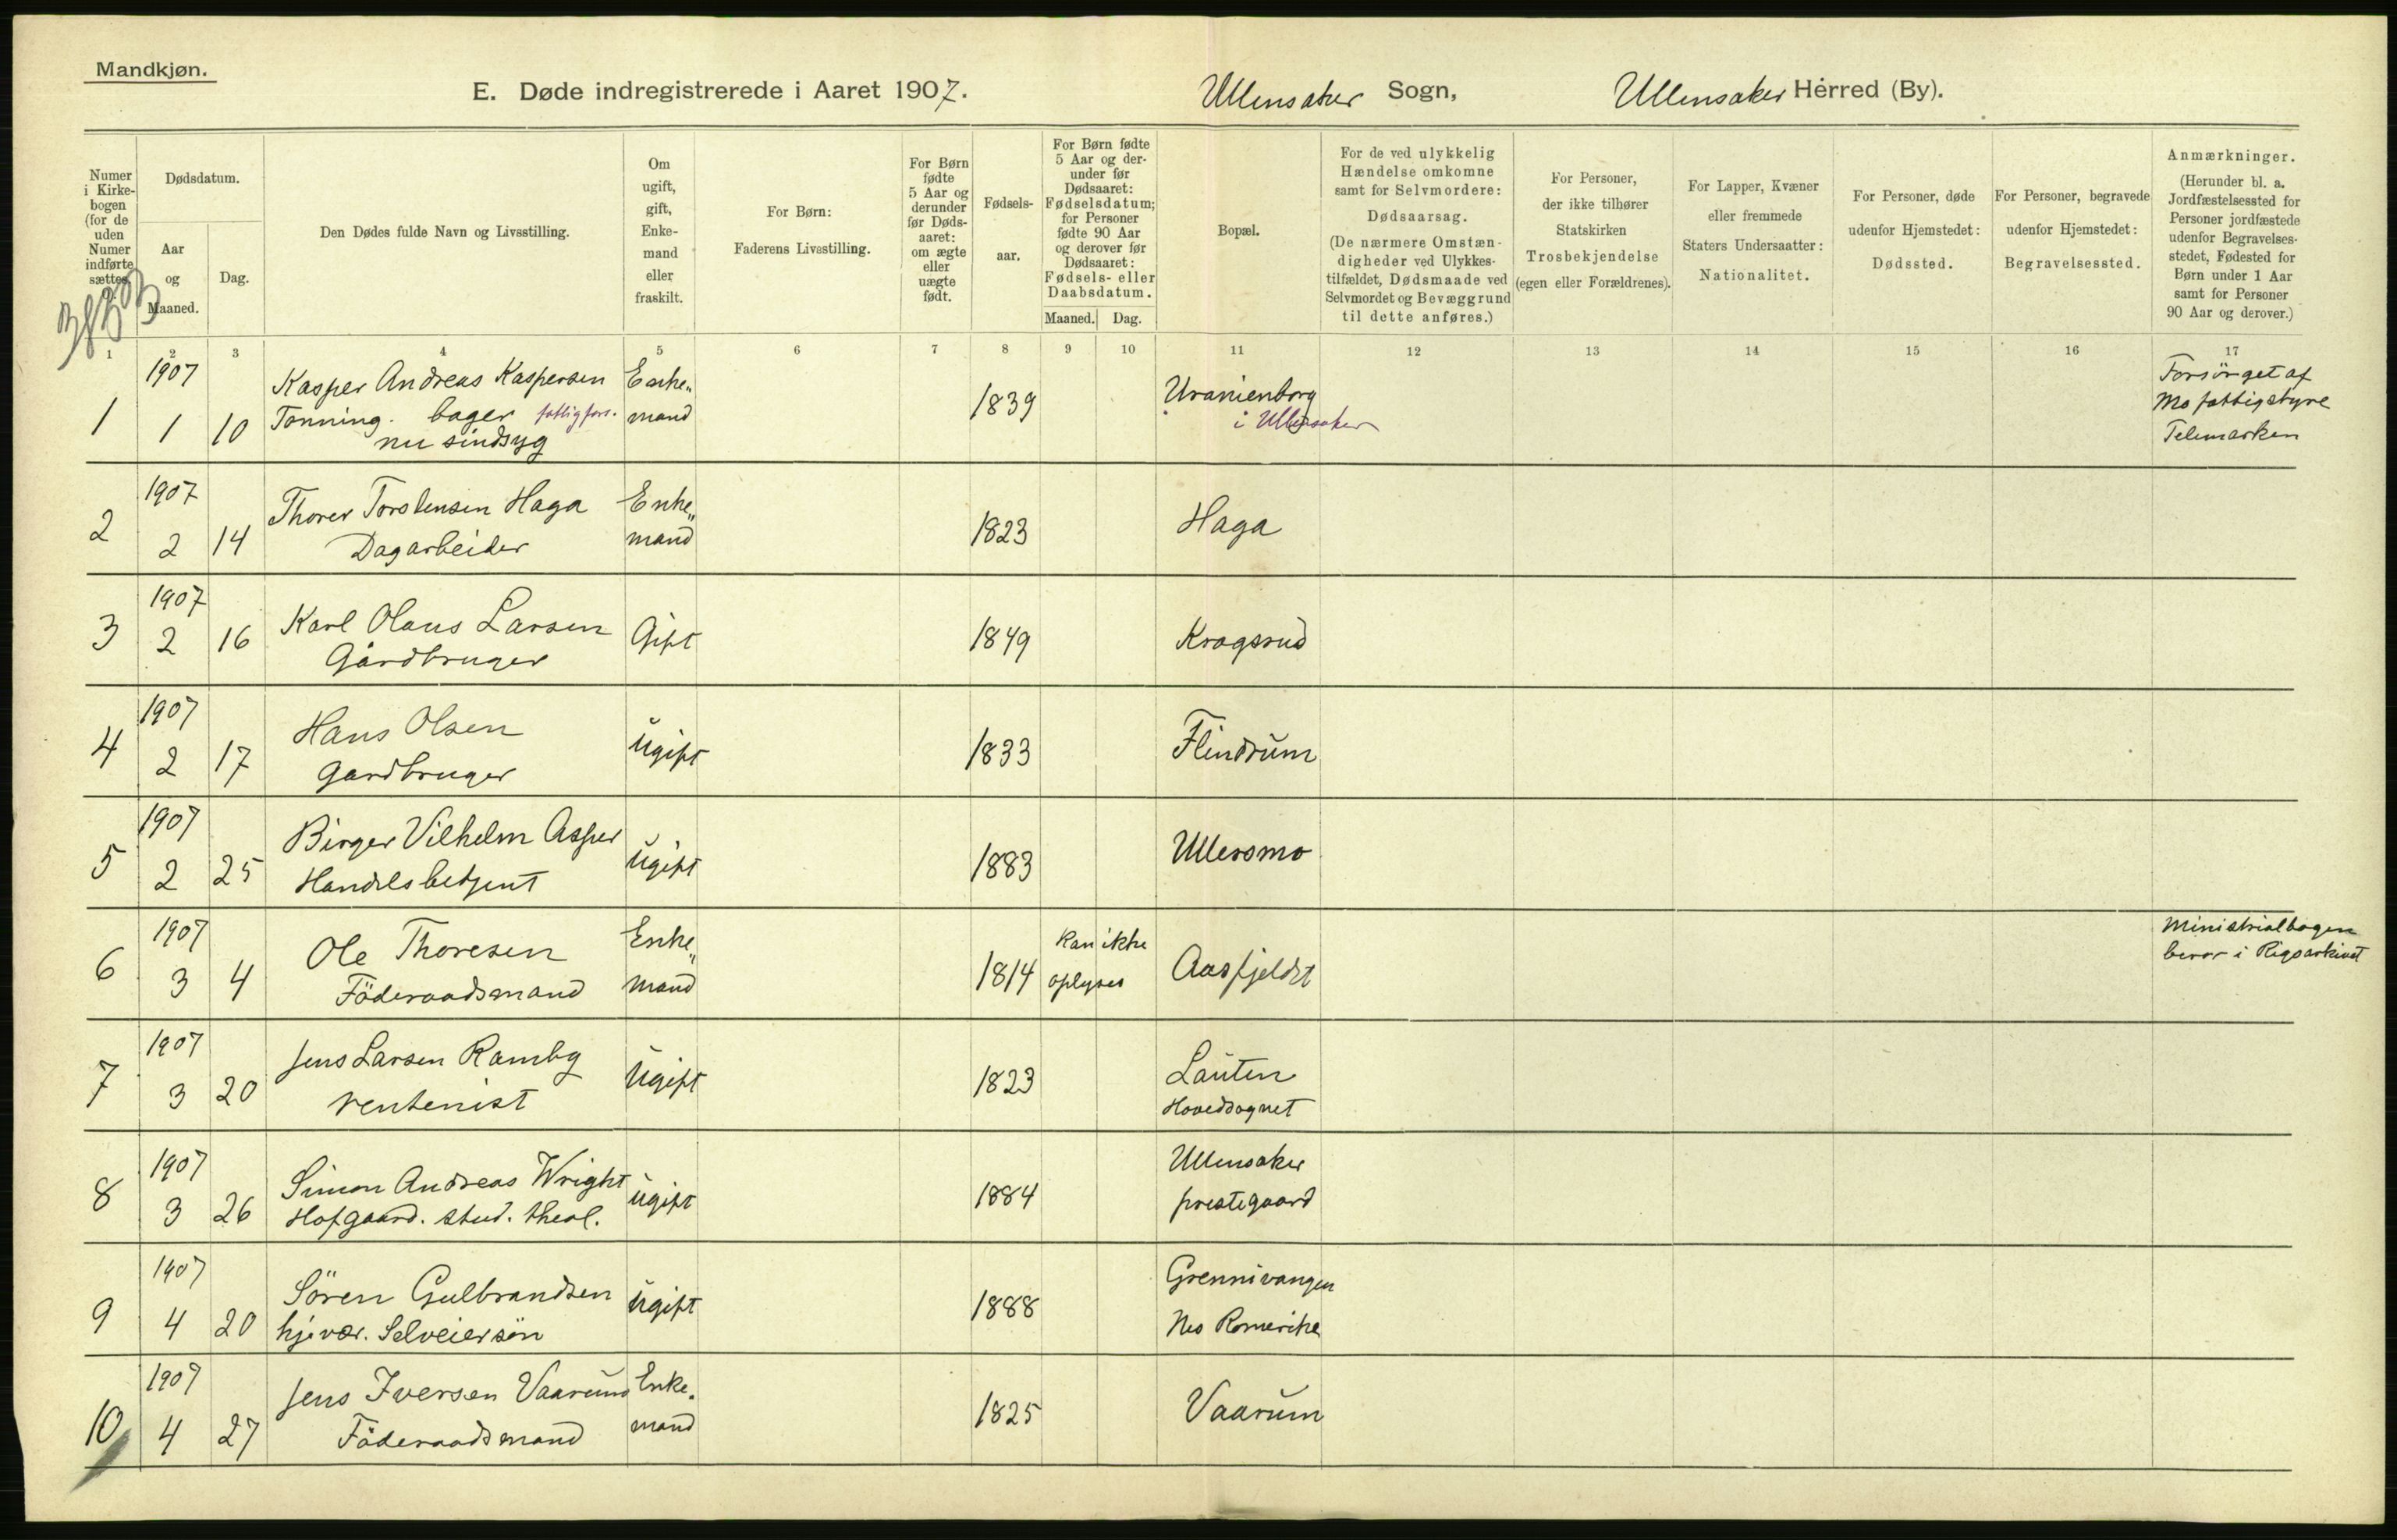 Mandkjøn.
E. Døde indregistrerede i Aaret 1907. Ullensaker Sogn, Ullensaker Herred (By).
Numer i Kirkebogen (for de uden Numer indførte sættes
Dødsdatum.
Aar og Maaned.
Dag.
Den Dødes fulde Navn og Livsstilling.
Om ugift, gift, Enkemand eller fraskilt.
For Børn: Faderens Livsstilling.
For Børn fødte 5 Aar og derunder før Dødsaaret: om ægte eller uægte født.
Fødselsaar.
For Børn fødte 5 Aar og derunder før Dødsaaret: Fødselsdatum; for Personer fødte 90 Aar og derover før Dødsaaret: Fødsels- eller Daabsdatum.
Maaned. Dag.
Bopæl.
For de ved ulykkelig Hændelse omkomne samt for Selvmordere: Dødsaarsag. (De nærmere Omstændigheder ved Ulykkestilfældet, Dødsmaade ved Selvmordet og Bevæggrund til dette anføres.)
For Personer, der ikke tilhører Statskirken Trosbekjendelse (egen eller Forældrenes).
For Lapper, Kvæner eller fremmede Staters Undersaatter: Nationalitet.
For Personer, døde udenfor Hjemstedet: Dødssted.
For Personer, begravede udenfor Hjemstedet: Begravelsessted.
Anmærkninger. (Herunder bl. a. Jordfæstelsessted for Personer jordfæstede udenfor Begravelsesstedet, Fødested for Børn under 1 Aar samt for Personer 90 Aar og derover.)
1 2 3 4 5 6 7 8 9 10 11 12 13 14 15 16 17
1907 Kasper Andreas Kaspersen Enke„ Uranienborg Forsörget af
1 1 10 Tonning. bager fattigfors. mand 1839 i Ullensaker Mo fattigstyre
nu sindsyg Telemarken
1907 Thorer Torstensen Haga Enke„
2 2 14 Dagarbeider mand 1823 Haga
1907
3 2 16 Karl Olaus Larsen Gift 1849 Kragsrud
Gårdbruger
1907 Hans Olsen
4 2 17 Gardbruger ugift 1833 Flindrum
1907 Birger Vilhelm Asper
5 2 25 Handelsbetjent ugift 1883 Ullersmo
1907 Ole Thoresen Enke„ Kan ikke Ministrialbogen
6 3 4 Föderaadsmand mand 1814 oplyses Aasfjeldet beror i Rigsarkivet
1907 Jens Larsen Ramby
7 3 20 rentenist ugift 1823 Lauten
Hovedsognet
1907 Simon Andreas Wright Ullensaker
8 3 26 Hofgaard. stud. theol. ugift 1884 prestegaard
1907 Sören Gulbrandsen Grennivangen
9 4 20 hjevær. Selveiersön ugift 1888 Nes Romerike
1907 Jens Iversen Vaarum Enke„
10 4 27 Föderaadsmand mand 1825 Vaarum